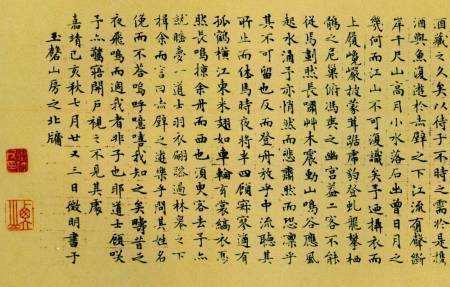 酒藏之久矣以待子不時之需於是攜
酒與魚復遊於赤壁之下江流有聲斷
岸千尺山高月小水落石出曾日月之
幾何而江山不可復識矣予迺攝衣而
上履巉巖披蒙茸踞虎豹登虬龍攀栖
鶻之危巢俯馮夷之幽宮蓋二客不能
從焉劃然長嘯草木震動山鳴谷應風
起水涌予亦悄然而悲肅然而恐凜乎
其不可留也反而登舟放乎中流聽其
所止而休焉時夜將半四顧寂寥適有
孤鶴橫江東來翅如車輪玄裳縞衣戛
然長鳴掠余舟而西也須臾客去予亦
就睡夢一道士羽衣翩躚過林皋之下
揖余而言曰赤壁之遊樂乎問其姓名
俛而不答嗚呼噫嘻我知之矣疇昔之
夜飛鳴而過我者非子也耶道士顧笑
予亦驚寤開戶視之不見其處
嘉靖己亥秋七月廿又三日徵明書于
玉磬山房之北牖